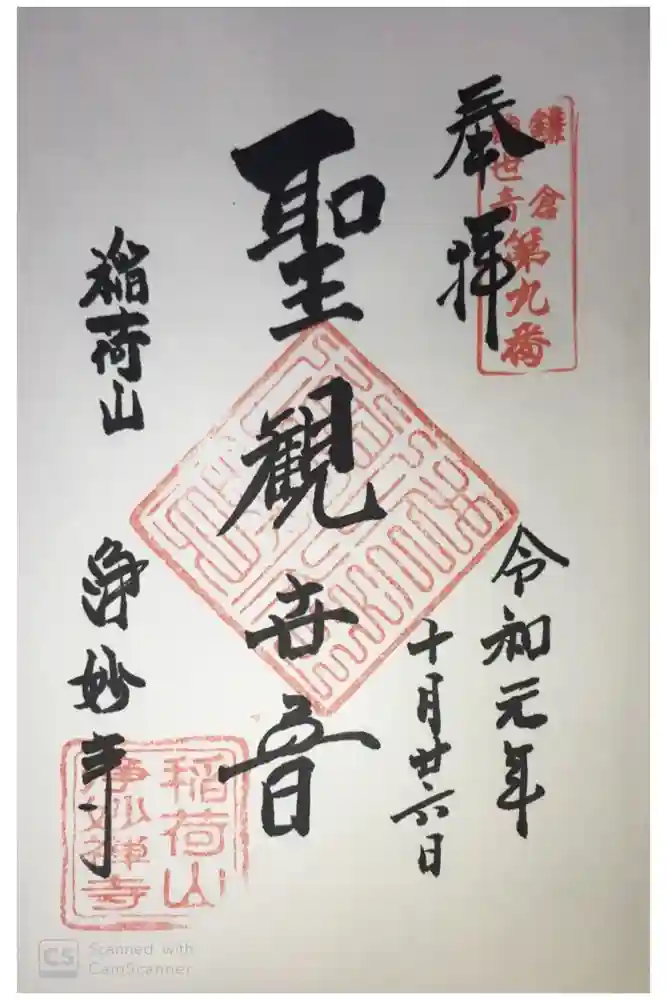 奉拝
鎌倉
観世音第九番
令和元年
十月廿六日
聖観世音
稲荷山
浄妙寺
稲荷山
浄妙禅寺
CS
Scanned with
CamScanner